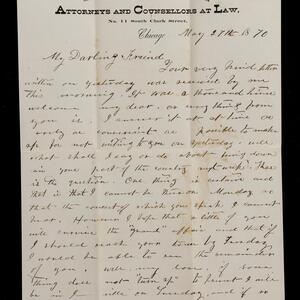 Attorneys and Counsellors at Law,
No. 11 South Clark Street,
Chicago May 27th 1870
My Darling Friend
Your very kind letter
written on yesterday was received by me
this morning. It was a thousand times
welcome my dear, as every thing from
you is. I answer it at as
early a convenient as possible to make
up for not writing to you on yesterday. Well
what shall I say or do about being down
in your part of the country next week? This
is the question. One thing is certain and
that is that I cannot be there on Monday so
that the concert of which you speak I cannot
hear. However I hope that a little of you
will survive the "grand" affair and that if
I should reach your town by Tuesday
I would be able to see the remainder
of you. Well, my love if some
thing does not "turn up" to prevent I will
be in on Sunday, and if so